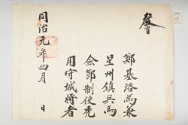 鄭基洛爲兼
星州鎭兵馬
僉節制使禿
用守城將者
同治元年四月 日